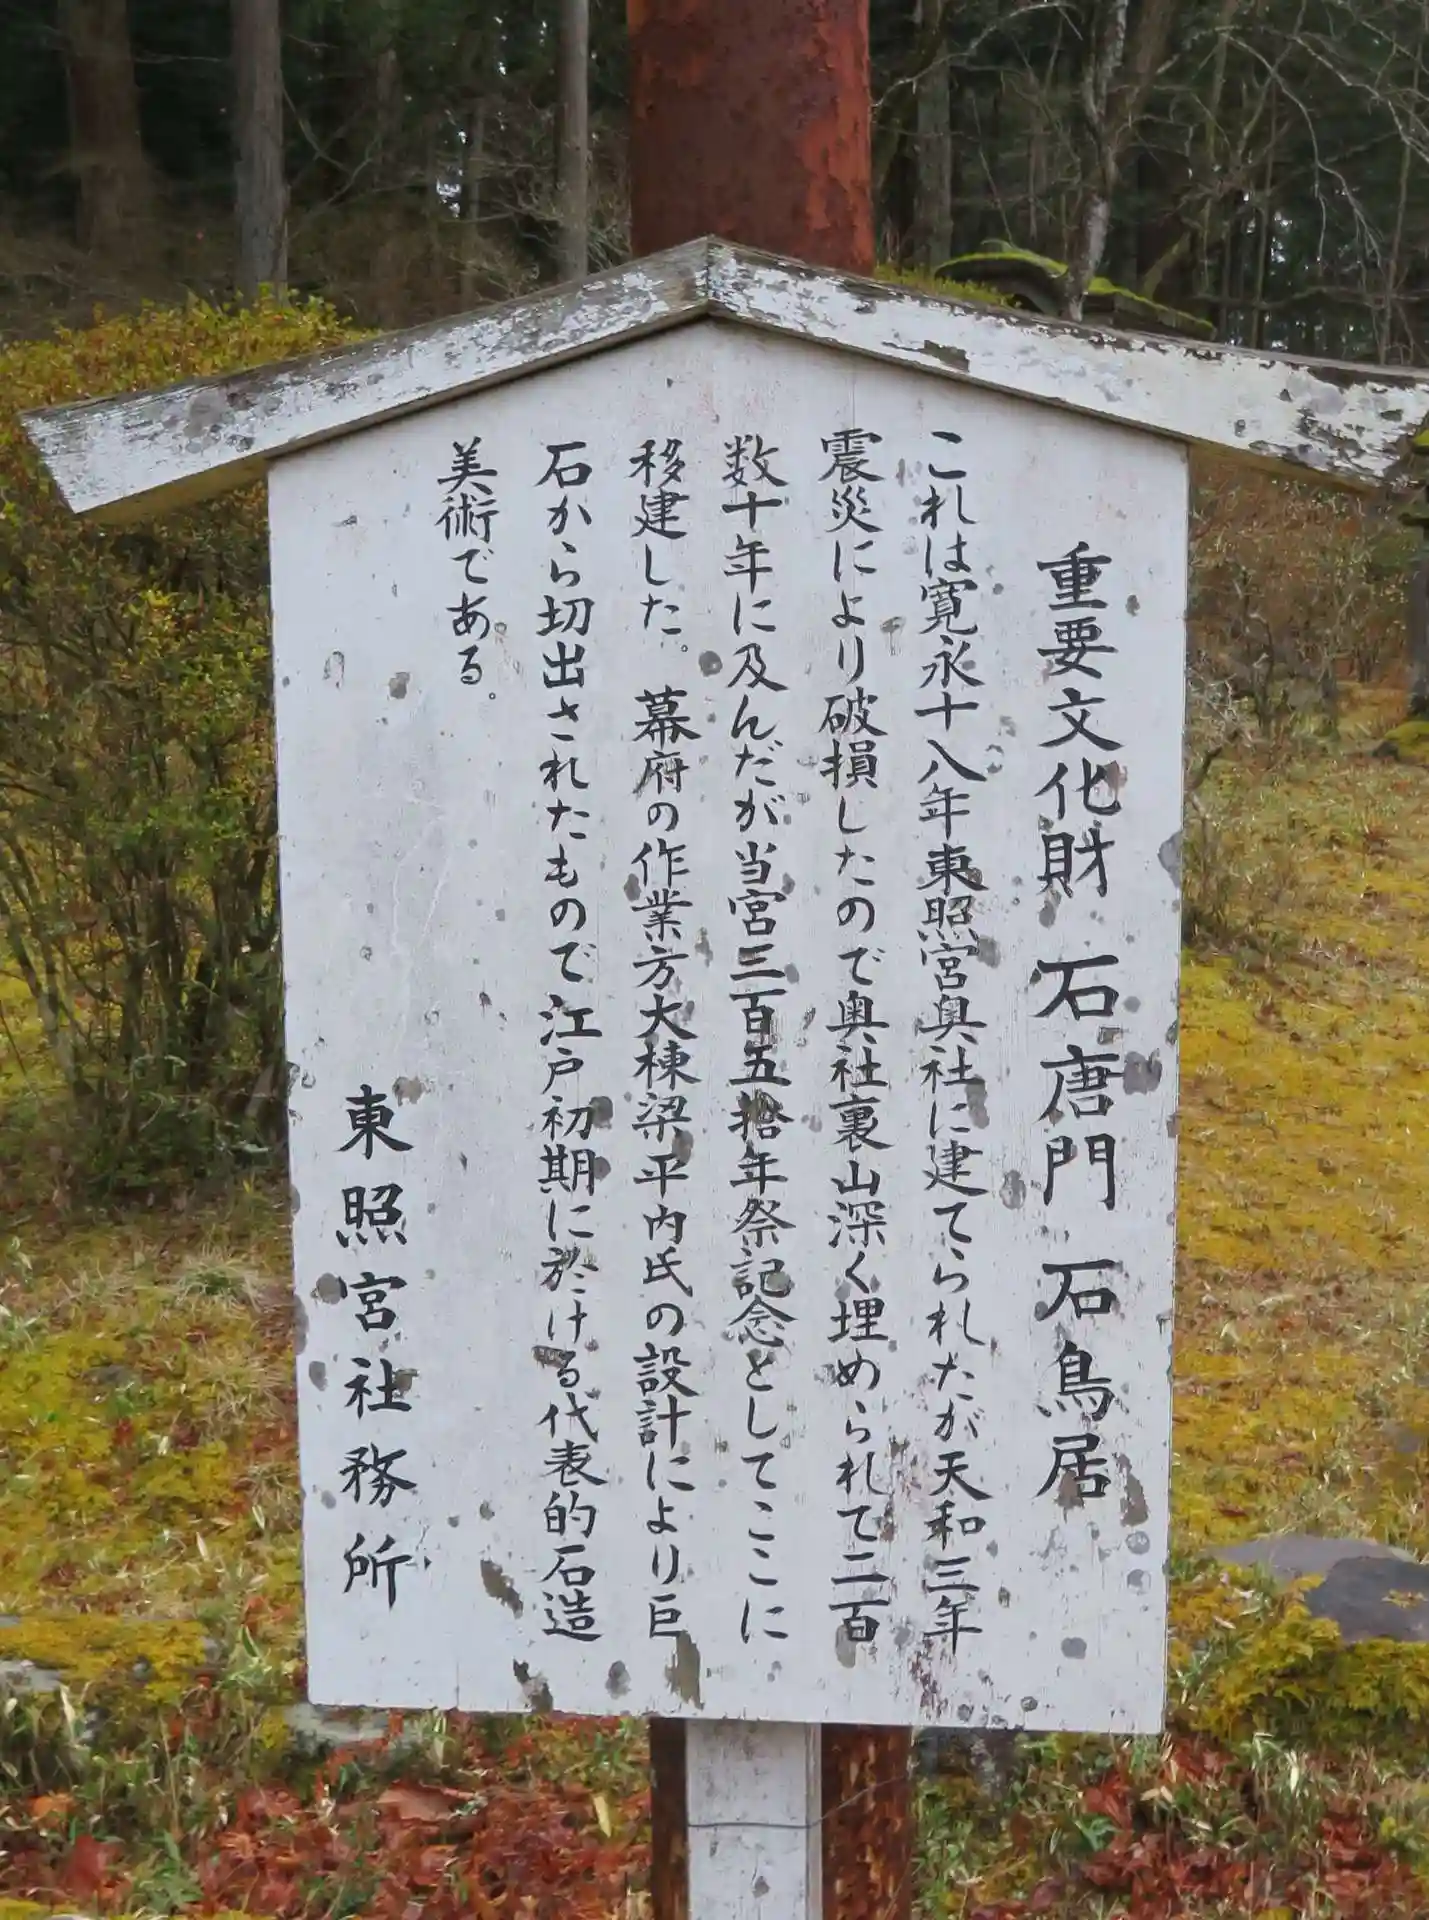 重要文化財 石唐門 石鳥居
これは寛永十八年東照宮奥社に建てられたが天和三年
震災により破損したので奥社裏山深く埋められて二百
数十年に及んだが当宮三百五拾年祭記念としてここに
移建した。幕府の作業方大棟梁平内氏の設計により巨
石から切出されたもので江戸初期に於ける代表的石造
美術である。
東照宮社務所